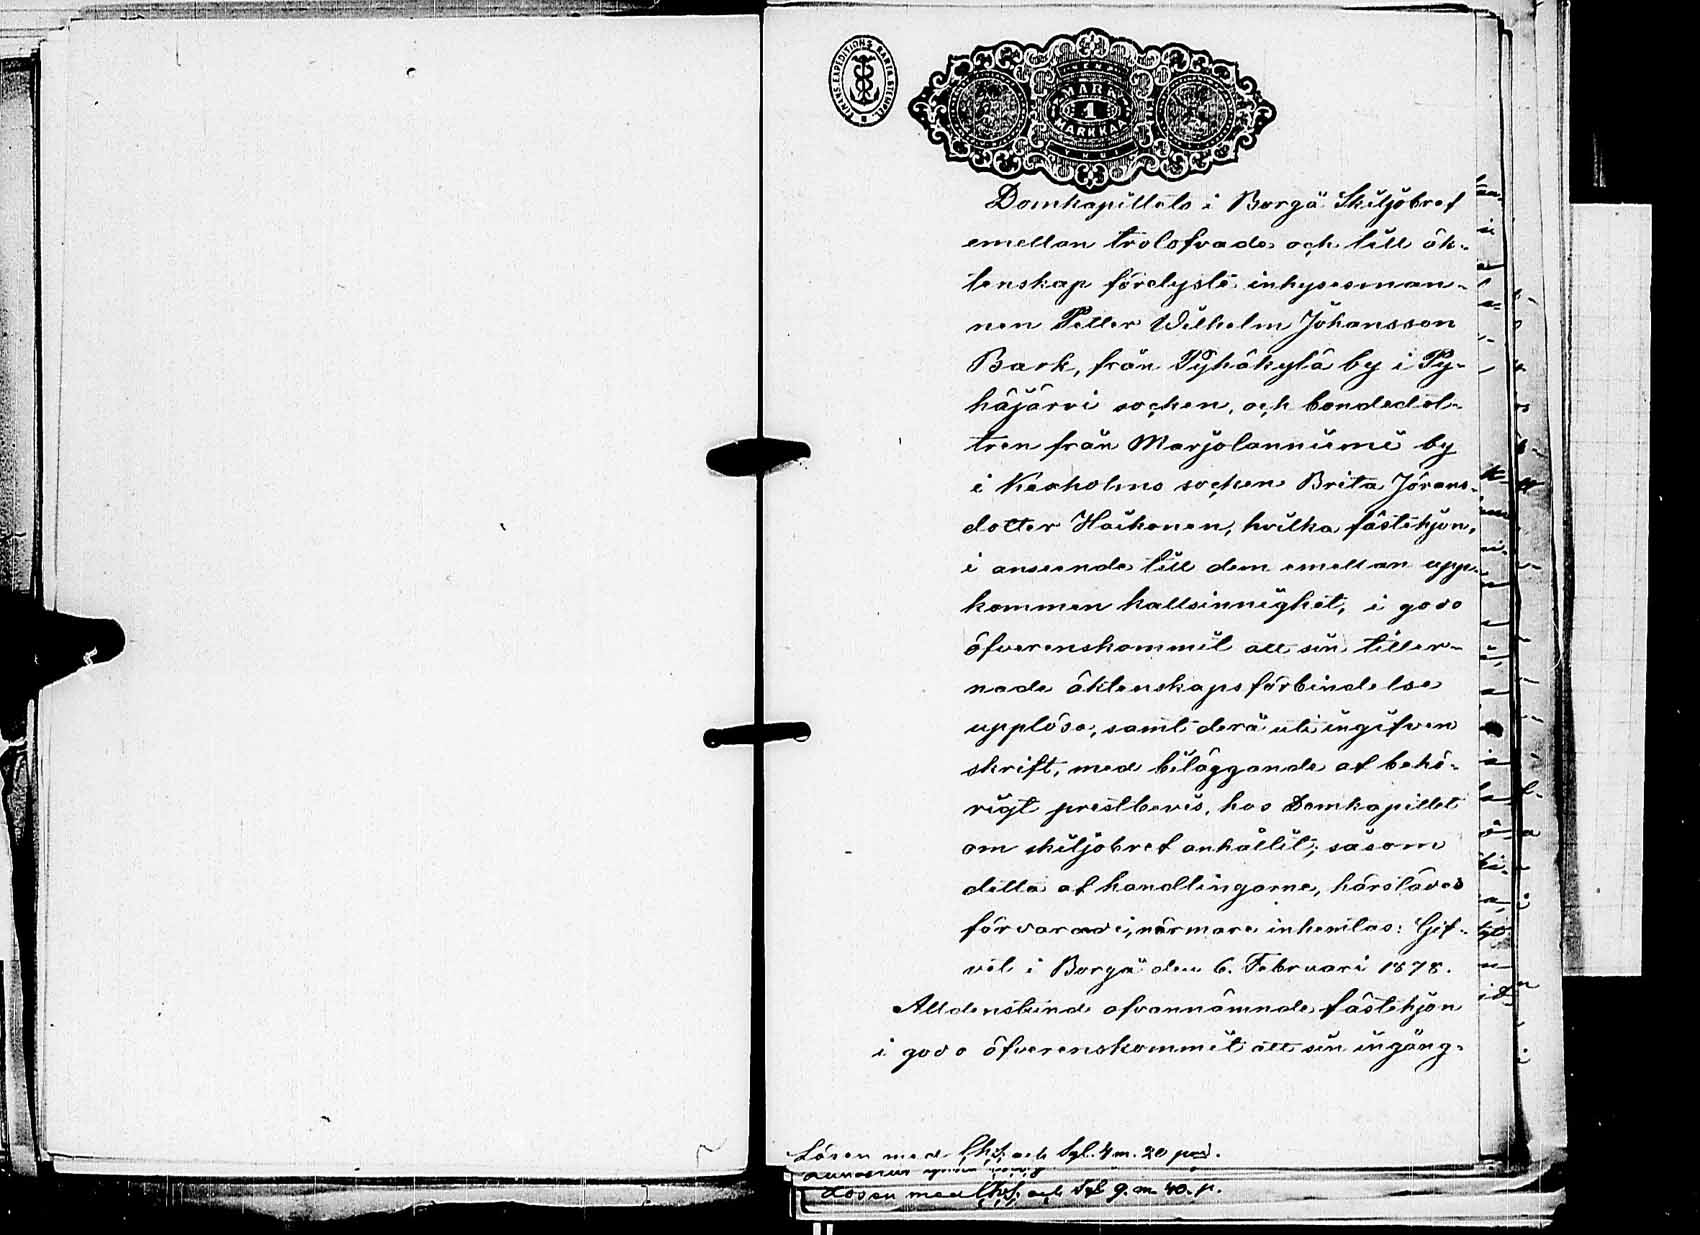 MARK
1
MARKKAA
Domkapitlets i Borgå Skiljobref
emellan trolofvade och till äk-
tenskap förelyste inhysesman-
nen Petter Wilhelm Johansson
Bark, från Pyhäkylä by i Py-
häjärvi socken, och bondedot-
tren från Marjolanniemi by
i Kexholms socken Brita Jörans-
dotter Haikonen, hvilka fästehjon,
i anseende till dem emellan upp-
kommen kallsinnighet, i godo
öfverenskommit att sin tiller-
nade äktenskapsförbindelse
upplösa, samt derå uti ingifven
skrift, med biläggande af behö-
rigt prestbevis, hos Domkapitlet
om skiljobref anhållit; såsom
detta af handlingarne, härstädes
förvarade, närmare inhemtas: Gif-
vet i Borgå den 6. Februari 1878.
Alldenstund ofvannämnde fästehjon
i godo öfverenskommit att sin ingång-
Lösen med Chs. och Sgl. 4 m. 20 p.
Lösen med Chs. och Sgl. 9 m. 40. p.